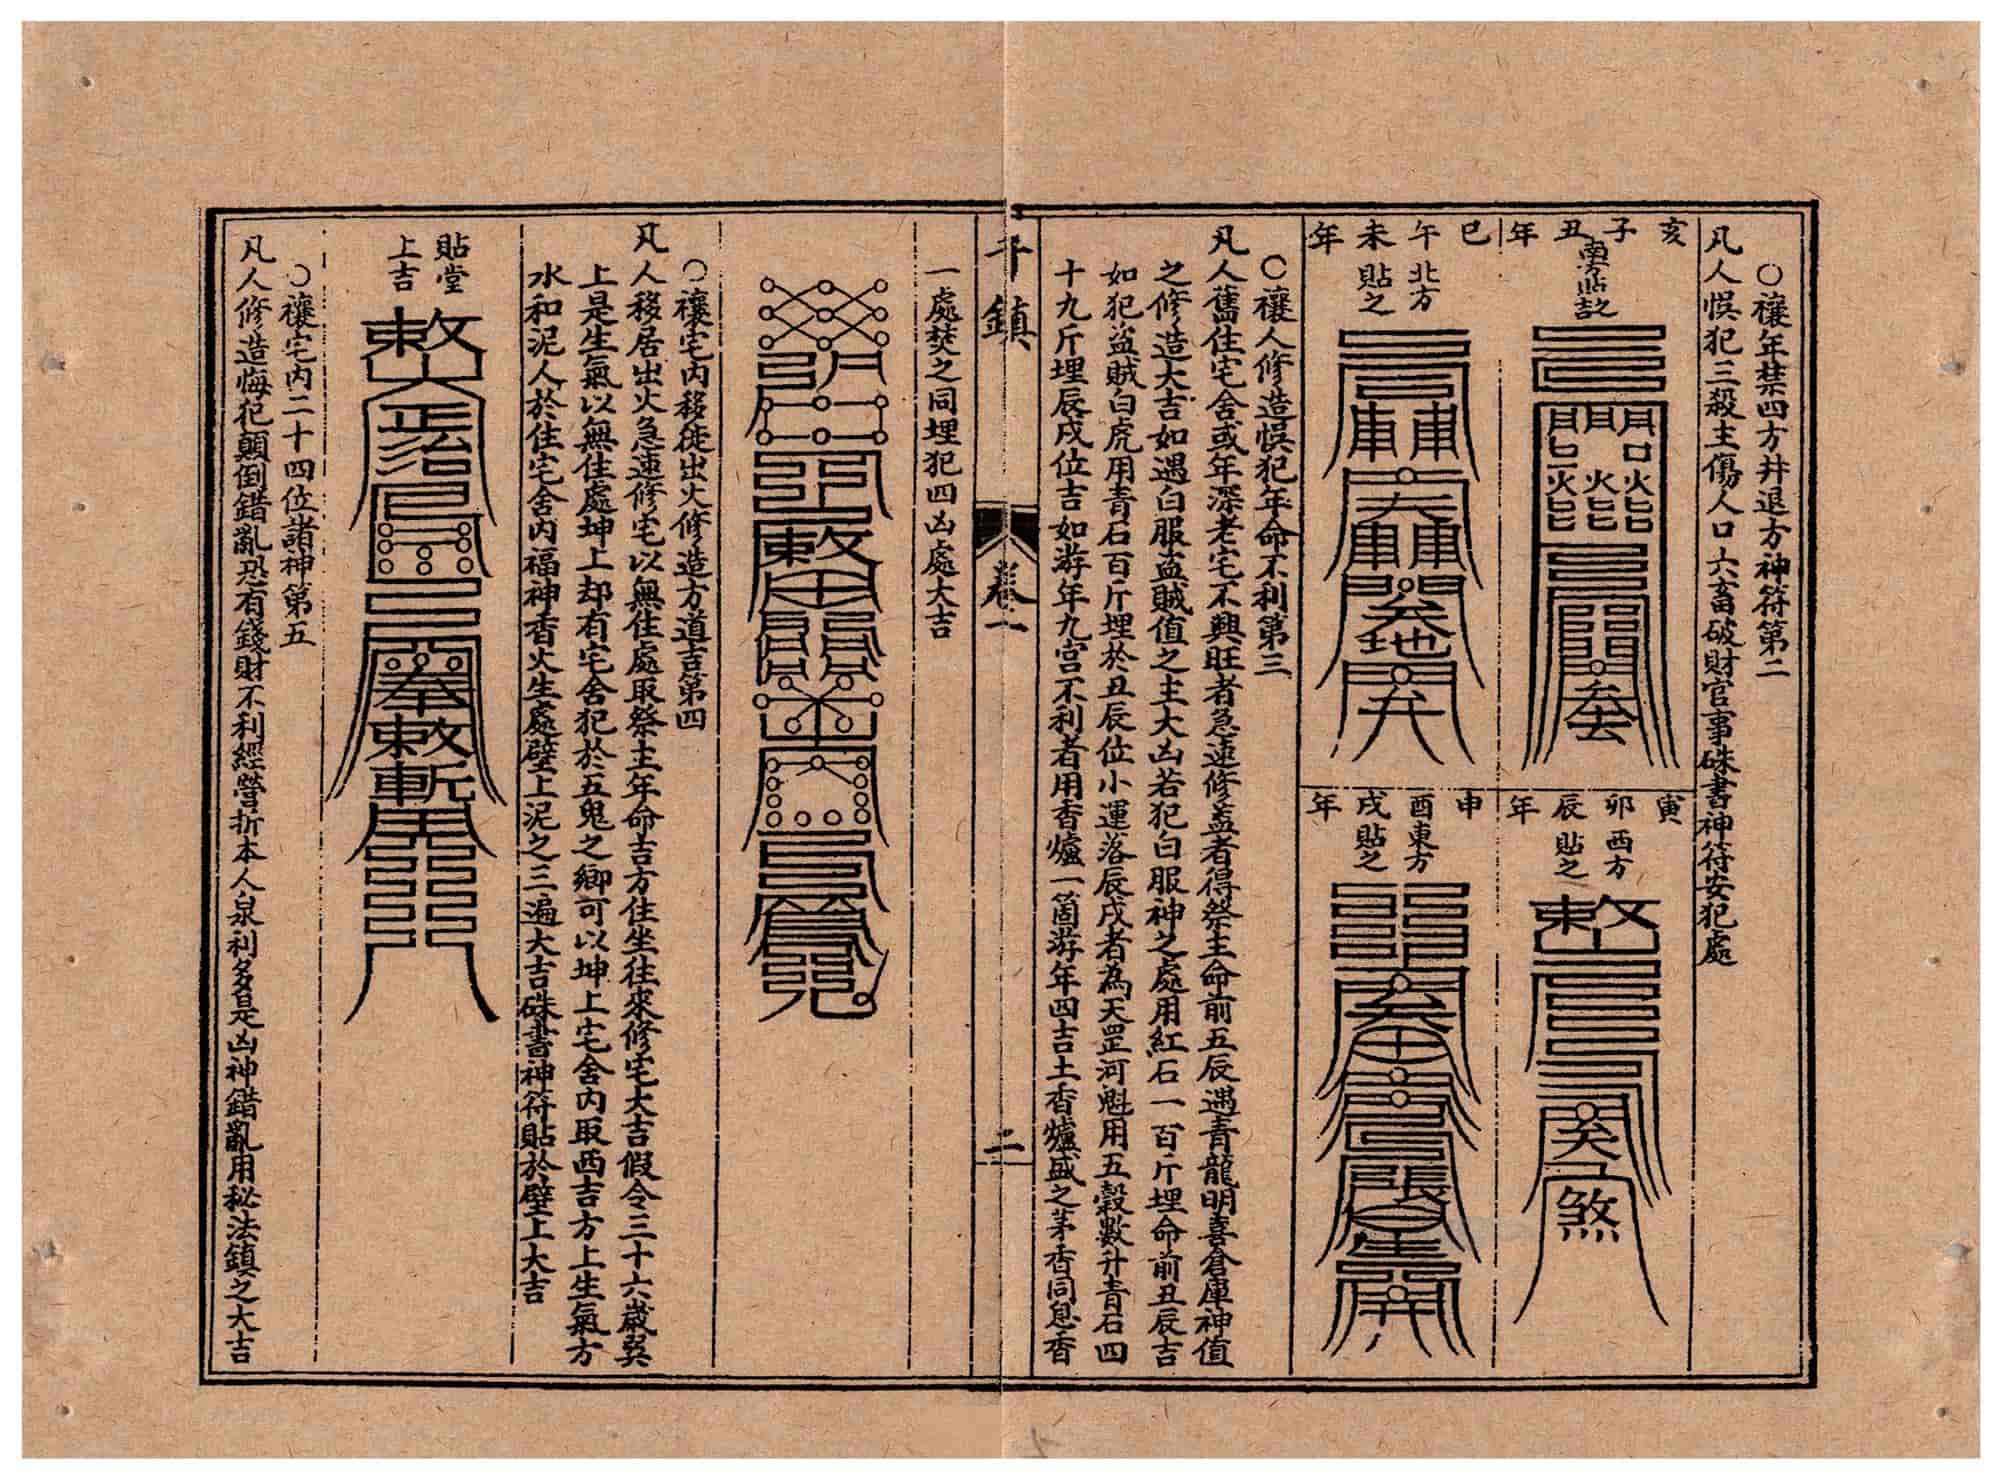 ○禳年禁四方井退方神符第二
凡人悞犯三殺主傷人口六畜破財官事硃書神符安犯處
亥子丑年
南方貼之
巳午未年
北方貼之
寅卯辰年
西方貼之
申酉戌年
東方貼之
○禳人修造悞犯年命不利第三
凡人舊住宅舍或年深老宅不興旺者急速修蓋者得祭主命前五辰遇青龍明喜倉庫神值
之修造大吉如遇白服盜賊值之主大凶若犯白服神之處用紅石一百斤埋命前丑辰吉
如犯盜賊白虎用青石百斤埋於丑辰位小運落辰戌者為天罡河魁用五穀數升青石四
十九斤埋辰戌位吉如游年九宮不利者用香爐一箇游年四吉土香爐盛之茅香同息香
鎮
卷二
二
一處焚之同埋犯四凶處大吉
○禳宅內移徙出火修造方道吉第四
凡人移居出火急速修宅以無住處取祭主年命吉方住坐往來修宅大吉假令三十六歲巽
上是生氣以無住處坤上却有宅舍犯於五鬼之鄉可以坤上宅舍內取西吉方上生氣方
水和泥人於住宅舍內福神香火生處壁上泥之三遍大吉硃書神符貼於壁上大吉
貼堂
上吉
○禳宅內二十四位諸神第五
凡人修造悔犯顛倒錯亂恐有錢財不利經營折本人泉利多是凶神錯亂用秘法鎮之大吉